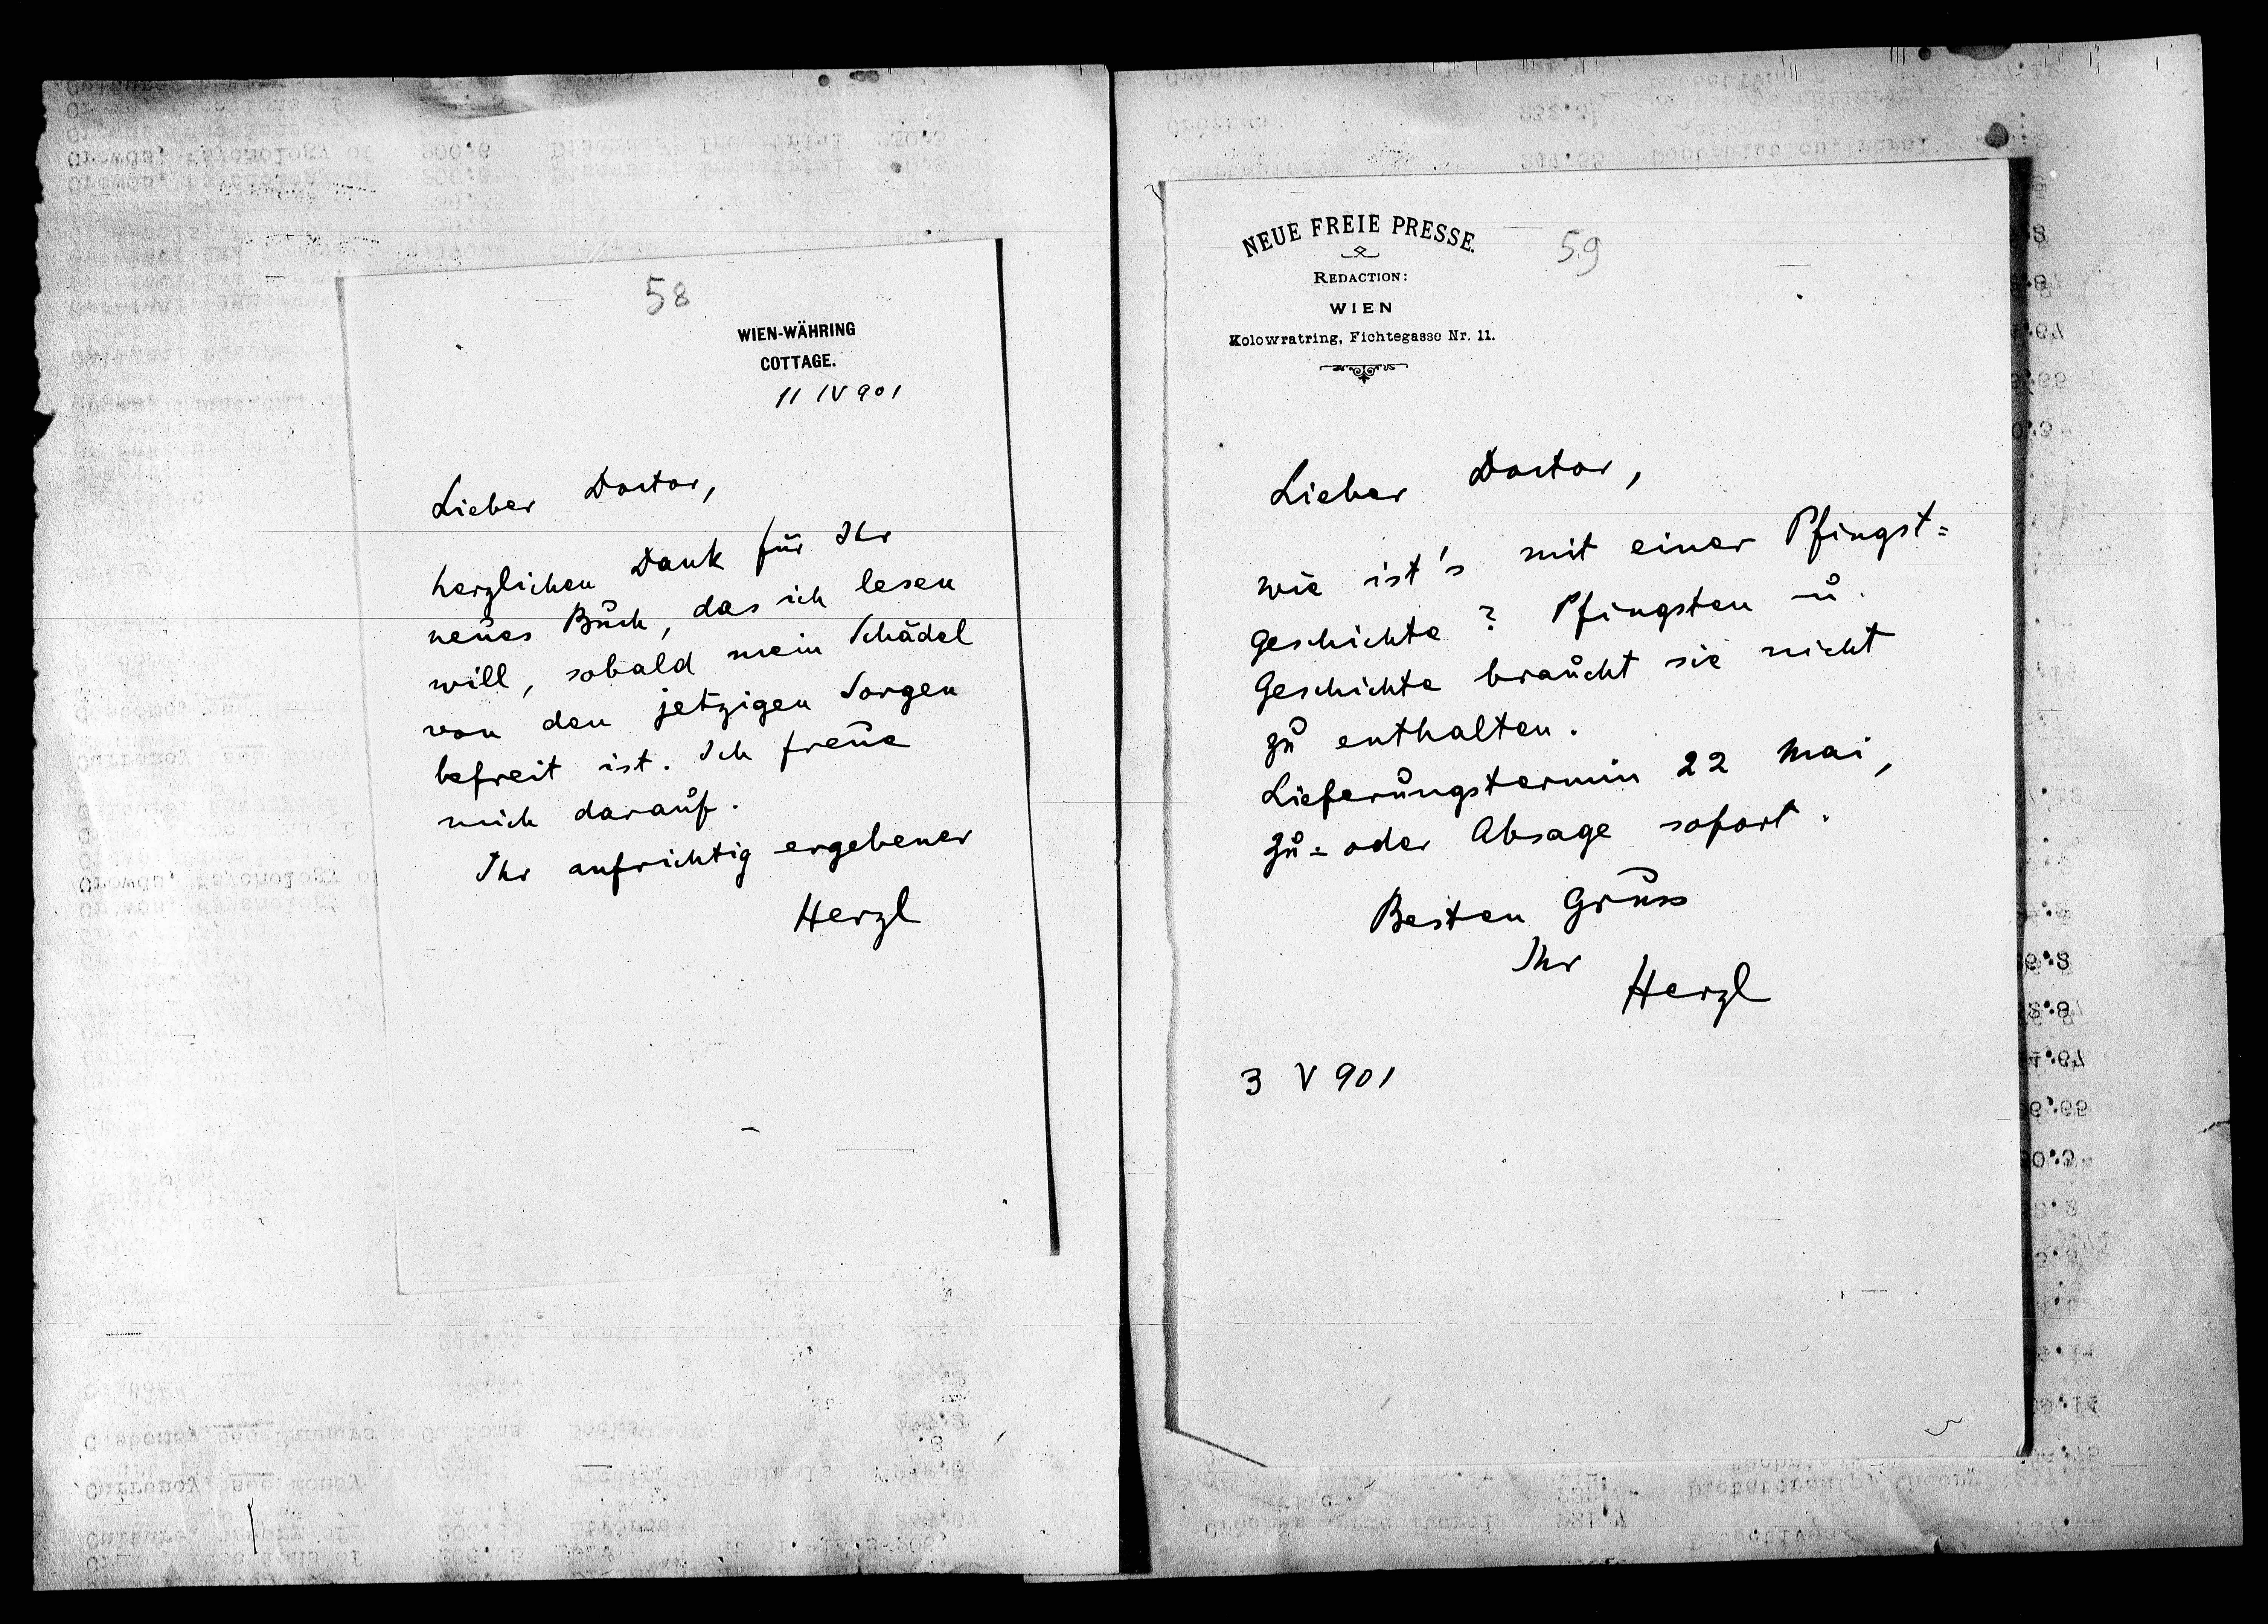 58
WIEN-WÄHRING
COTTAGE.
11 IV 901
Lieber Doctor,
herzlichen Dank für Ihr
neues Buch, das ich lesen
will, sobald mein Schädel
von den jetzigen Sorgen
befreit ist. Ich freue
mich darauf.
Ihr aufrichtig ergebener
Herzl
NEUE FREIE PRESSE.
59
REDACTION:
WIEN
Kolowratring, Fichtegasse Nr. 11.
Lieber Doctor,
wie ist's mit einer Pfingst=
geschichte? Pfingsten u.
Geschichte braucht sie nicht
zu enthalten.
Lieferungstermin 22 Mai,
Zu= oder Absage sofort.
Besten Gruss
Ihr
Herzl
3 V 901